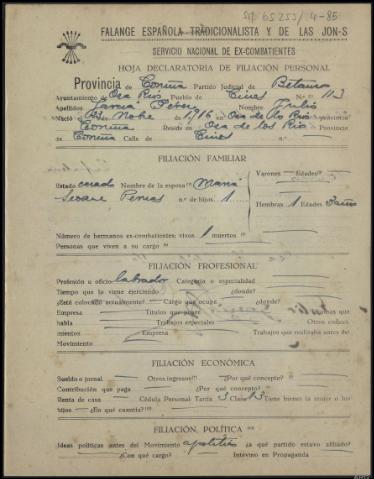 65255/4-85
FALANGE ESPAÑOLA TRADICIONALISTA Y DE LAS JON-S
SERVICIO NACIONAL DE EX-COMBATIENTES
HOJA DECLARATORIA DE FILIACIÓN PERSONAL
Provincia de Coruña Partido Judicial de Betanzos
Ayuntamiento de Oza Rio Pueblo de Cines N.º 113
Apellidos García Nombre Julio
Nació el Nobe de 1916 en Oza de los Rio provincia
Coruña Reside en Oza de los Rio Provincia
Coruña Calle de Cines
FILIACIÓN FAMILIAR
Varones Edades
Estado casado Nombre de la esposa María
Seoane n.º de hijos 1
Hembras 1 Edades 3 años
Número de hermanos ex-combatientes: vivos 1 muertos
Personas que viven a su cargo
FILIACIÓN PROFESIONAL
Profesión u oficio labrador Categoria o especialidad
Tiempo que la viene ejerciendo ¿donde?
¿Está colocado actualmente? Cargo que ocupa ¿donde?
Empresa Títulos que posee que
habla Trabajos especiales Otros
mientos Empresa Trabajos que realizaba antes del
Movimiento
FILIACIÓN ECONÓMICA
Sueldo o jornal Otros ingresos ¿Por qué concepto?
Contribución que paga ¿Por qué concepto?
Renta de casa Cédula Personal: Tarifa 3 Clase 13 Tiene bienes la mujer o los
hijos ¿En qué cuantía?
FILIACIÓN POLÍTICA
Ideas políticas antes del Movimiento apolitico ¿a qué partido estuvo afiliado?
¿Con qué cargo? Intervino en Propaganda